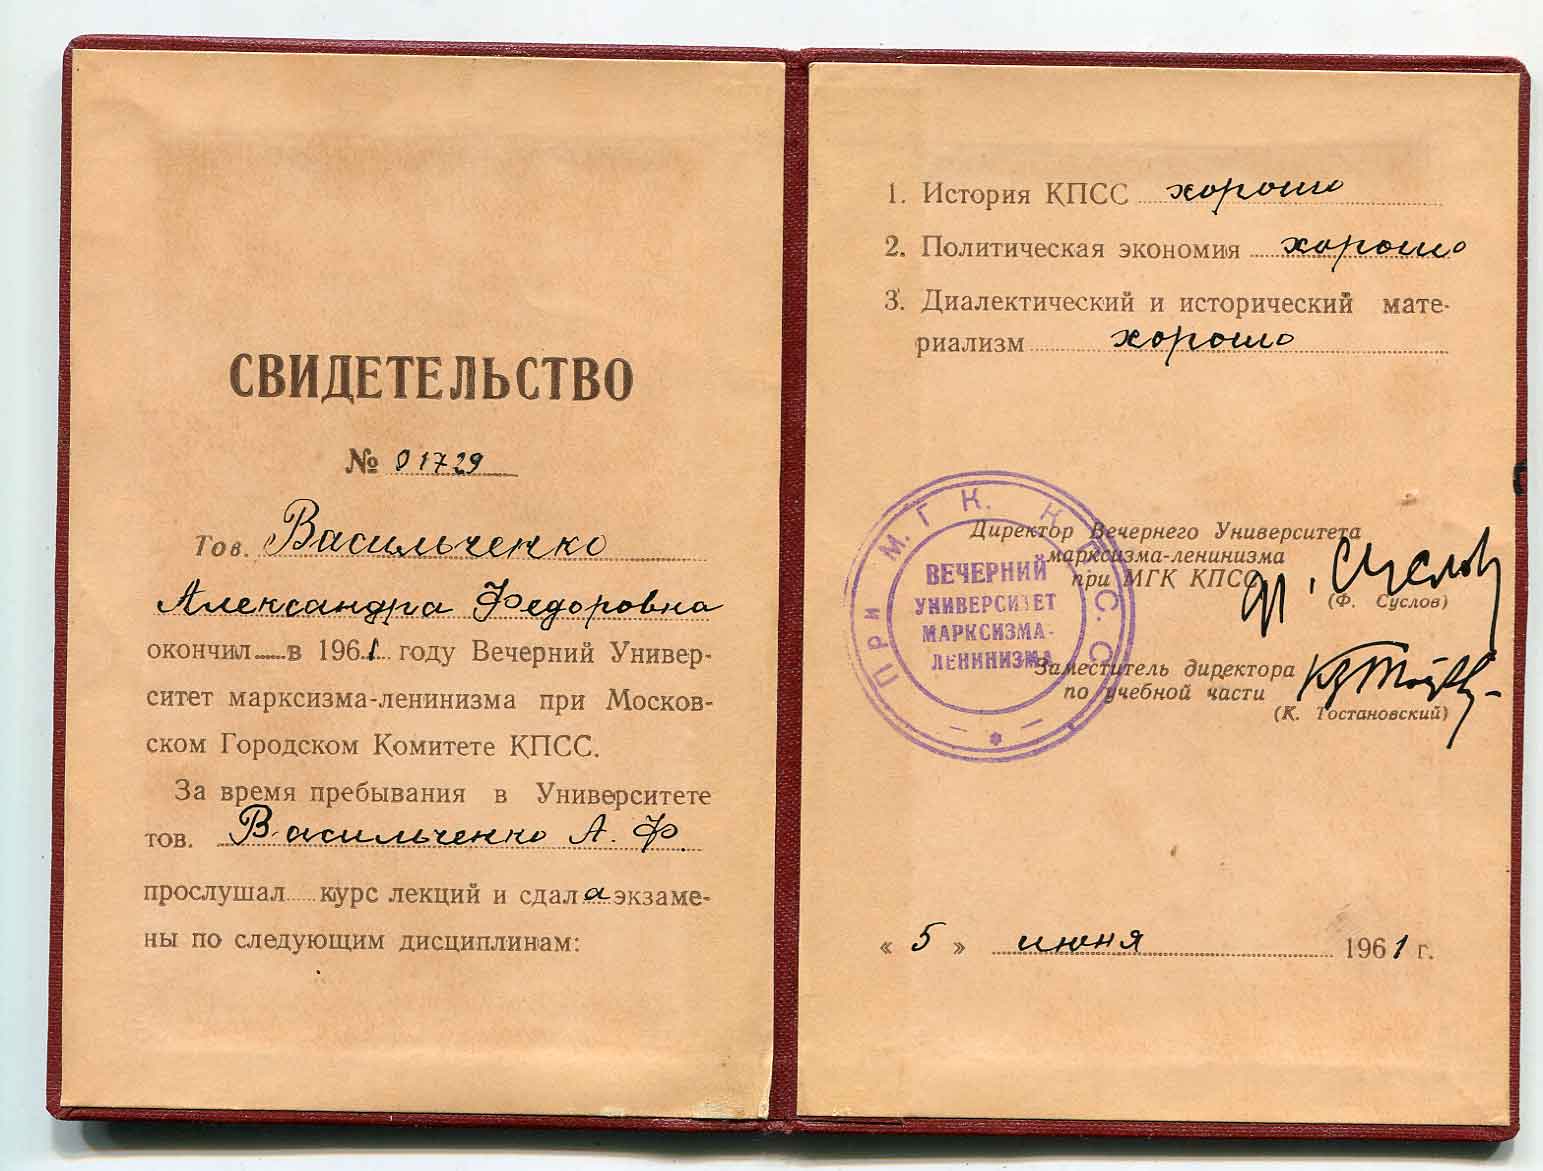 СВИДЕТЕЛЬСТВО
№ 01729
Тов. Васильченко
Александра Федоровна
окончил в 1961 году Вечерний Универ-
ситет марксизма-ленинизма при Москов-
ском Городском Комитете КПСС.
За время пребывания в Университете
тов. Васильченко А. Ф.
прослушал курс лекций и сдала экзаме-
ны по следующим дисциплинам:
1. История КПСС хорошо
2. Политическая экономия хорошо
3. Диалектический и исторический мате-
риализм хорошо
Директор Вечернего Университета
марксизма-ленинизма
при МГК КПСС
Суслов
(Ф. Суслов)
Заместитель директора
по учебной части
(К. Тостановский)
При М.Г.К. К.П.С.С.
ВЕЧЕРНИЙ
УНИВЕРСИТЕТ
МАРКСИЗМА-
ЛЕНИНИЗМА
« 5 » июня 1961 г.